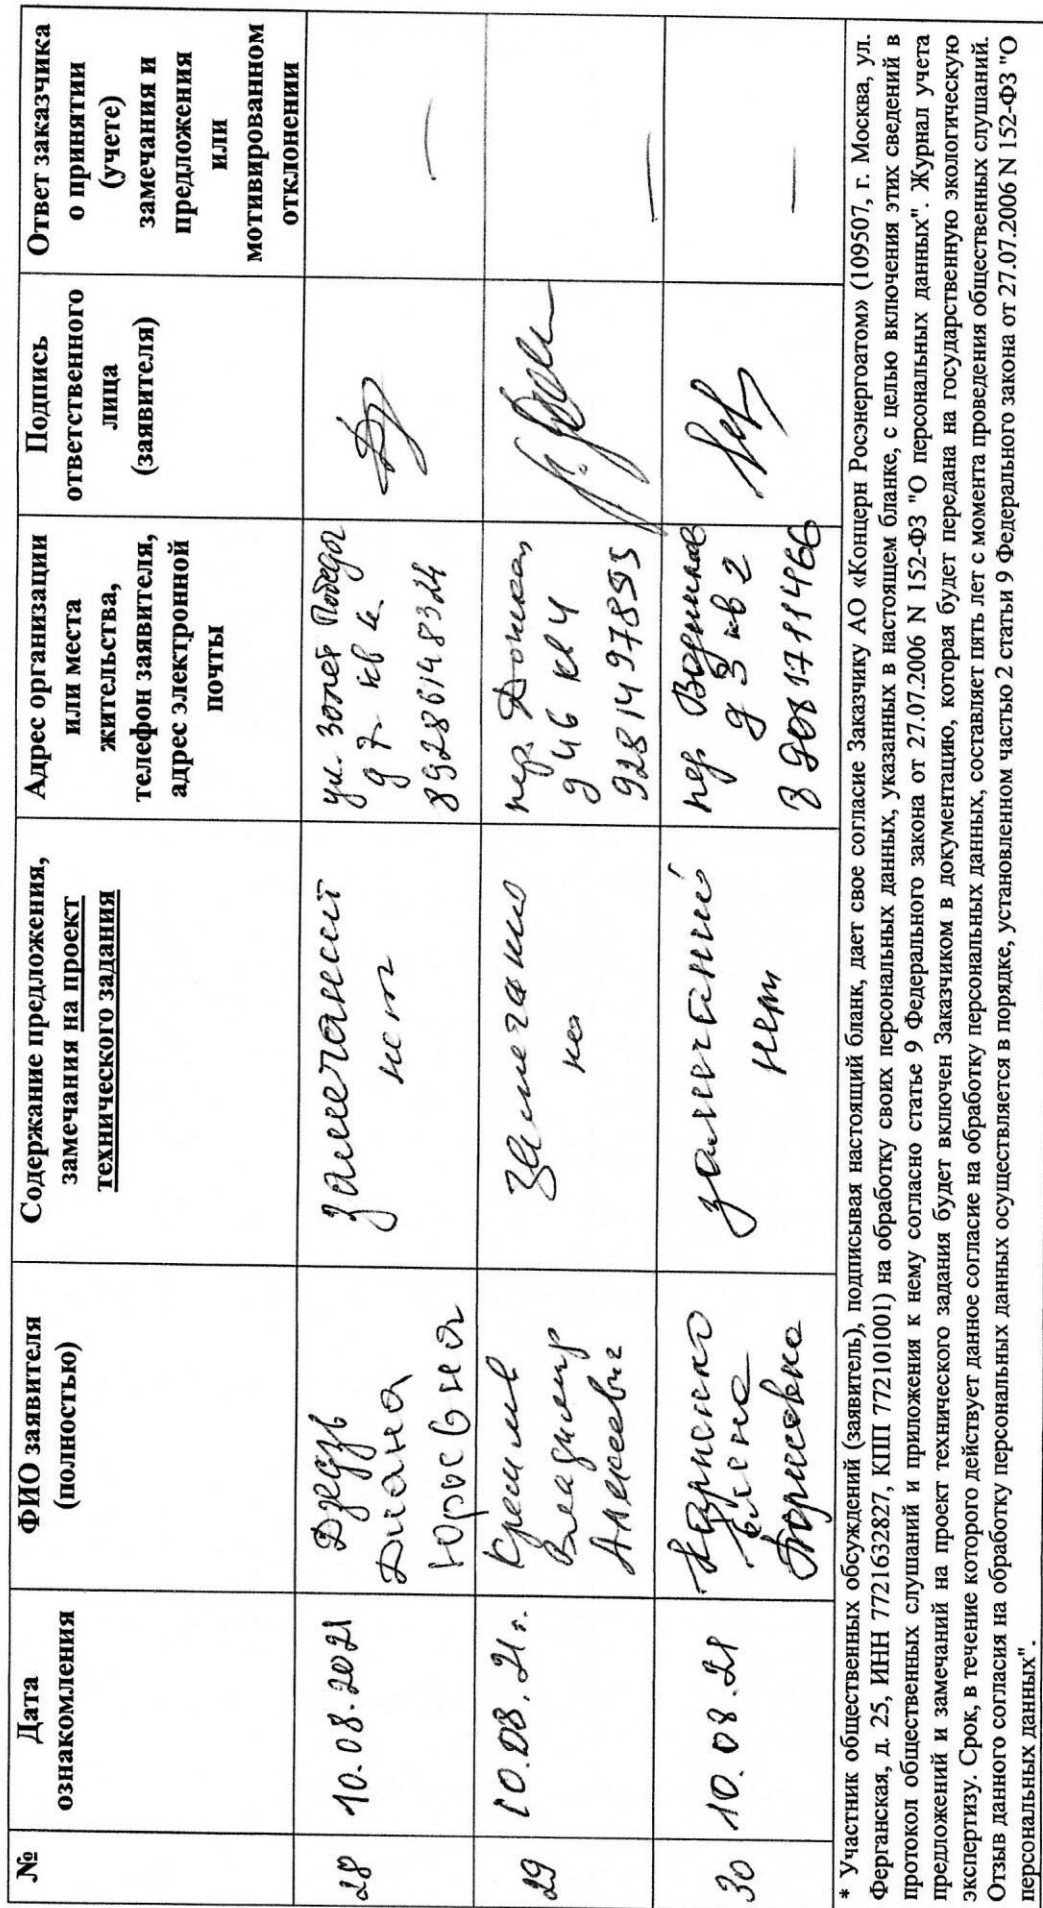 №
Дата
ознакомления
ФИО заявителя
(полностью)
Содержание предложения,
замечания на проект
технического задания
Адрес организации
или места
жительства,
телефон заявителя,
адрес электронной
почты
Подпись
ответственного
лица
(заявителя)
Ответ заказчика
о принятии
(учете)
замечания и
предложения
или
мотивированном
отклонении
28
10.08.2021
Диана
Юрьевна
замечаний
нет
ул. 30 лет Победы
д 7 кв
89286148324
29
10.08.21г.
Владимир
Алексеевич
пер.
д 46 кв 4
9281497895
30
10.08.21
Борисовна
замечаний
нет
пер
д 3 кв 2
* Участник общественных обсуждений (заявитель), подписывая настоящий бланк, дает свое согласие Заказчику АО «Концерн Росэнергоатом» (109507, г. Москва, ул.
Ферганская, д. 25, ИНН 7721632827, КПП 772101001) на обработку своих персональных данных, указанных в настоящем бланке, с целью включения этих сведений в
протокол общественных слушаний и приложения к нему согласно статье 9 Федерального закона от 27.07.2006 N 152-ФЗ "О персональных данных". Журнал учета
предложений и замечаний на проект технического задания будет включен Заказчиком в документацию, которая будет передана на государственную экологическую
экспертизу. Срок, в течение которого действует данное согласие на обработку персональных данных, составляет пять лет с момента проведения общественных слушаний.
Отзыв данного согласия на обработку персональных данных осуществляется в порядке, установленном частью 2 статьи 9 Федерального закона от 27.07.2006 N 152-ФЗ "О
персональных данных".